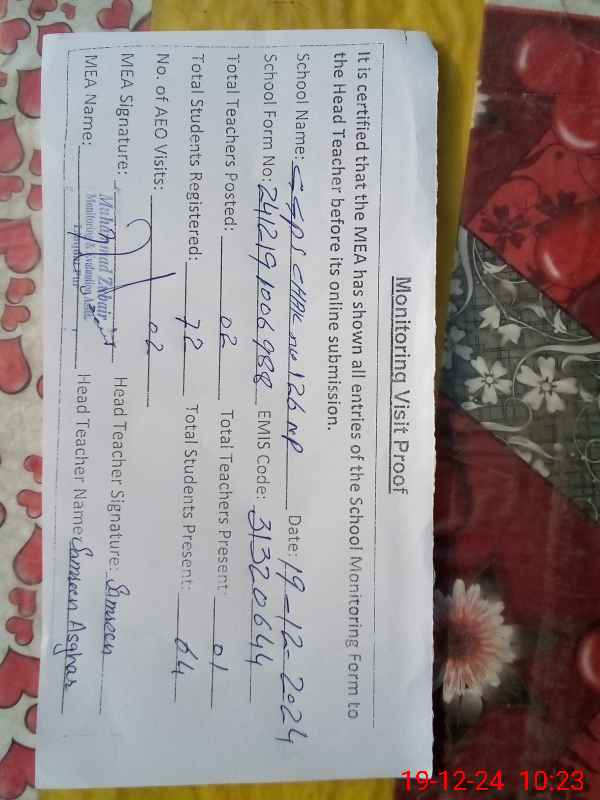 Monitoring Visit Proof
It is certified that the MEA has shown all entries of the School Monitoring Form to
the Head Teacher before its online submission.
School Name: GGPS CHAK no 126 NP Date: 19-12-2024
School Form No: 2412191006988 EMIS Code: 31320644
Total Teachers Posted: 02 Total Teachers Present: 01
Total Students Registered: 72 Total Students Present: 64
No. of AEO Visits: 02
MEA Signature: Head Teacher Signature: Simseen
Muhammad Zubair
Monitoring & Evaluating
MEA Name: Head Teacher Name: Asghar
19-12-24 10:23